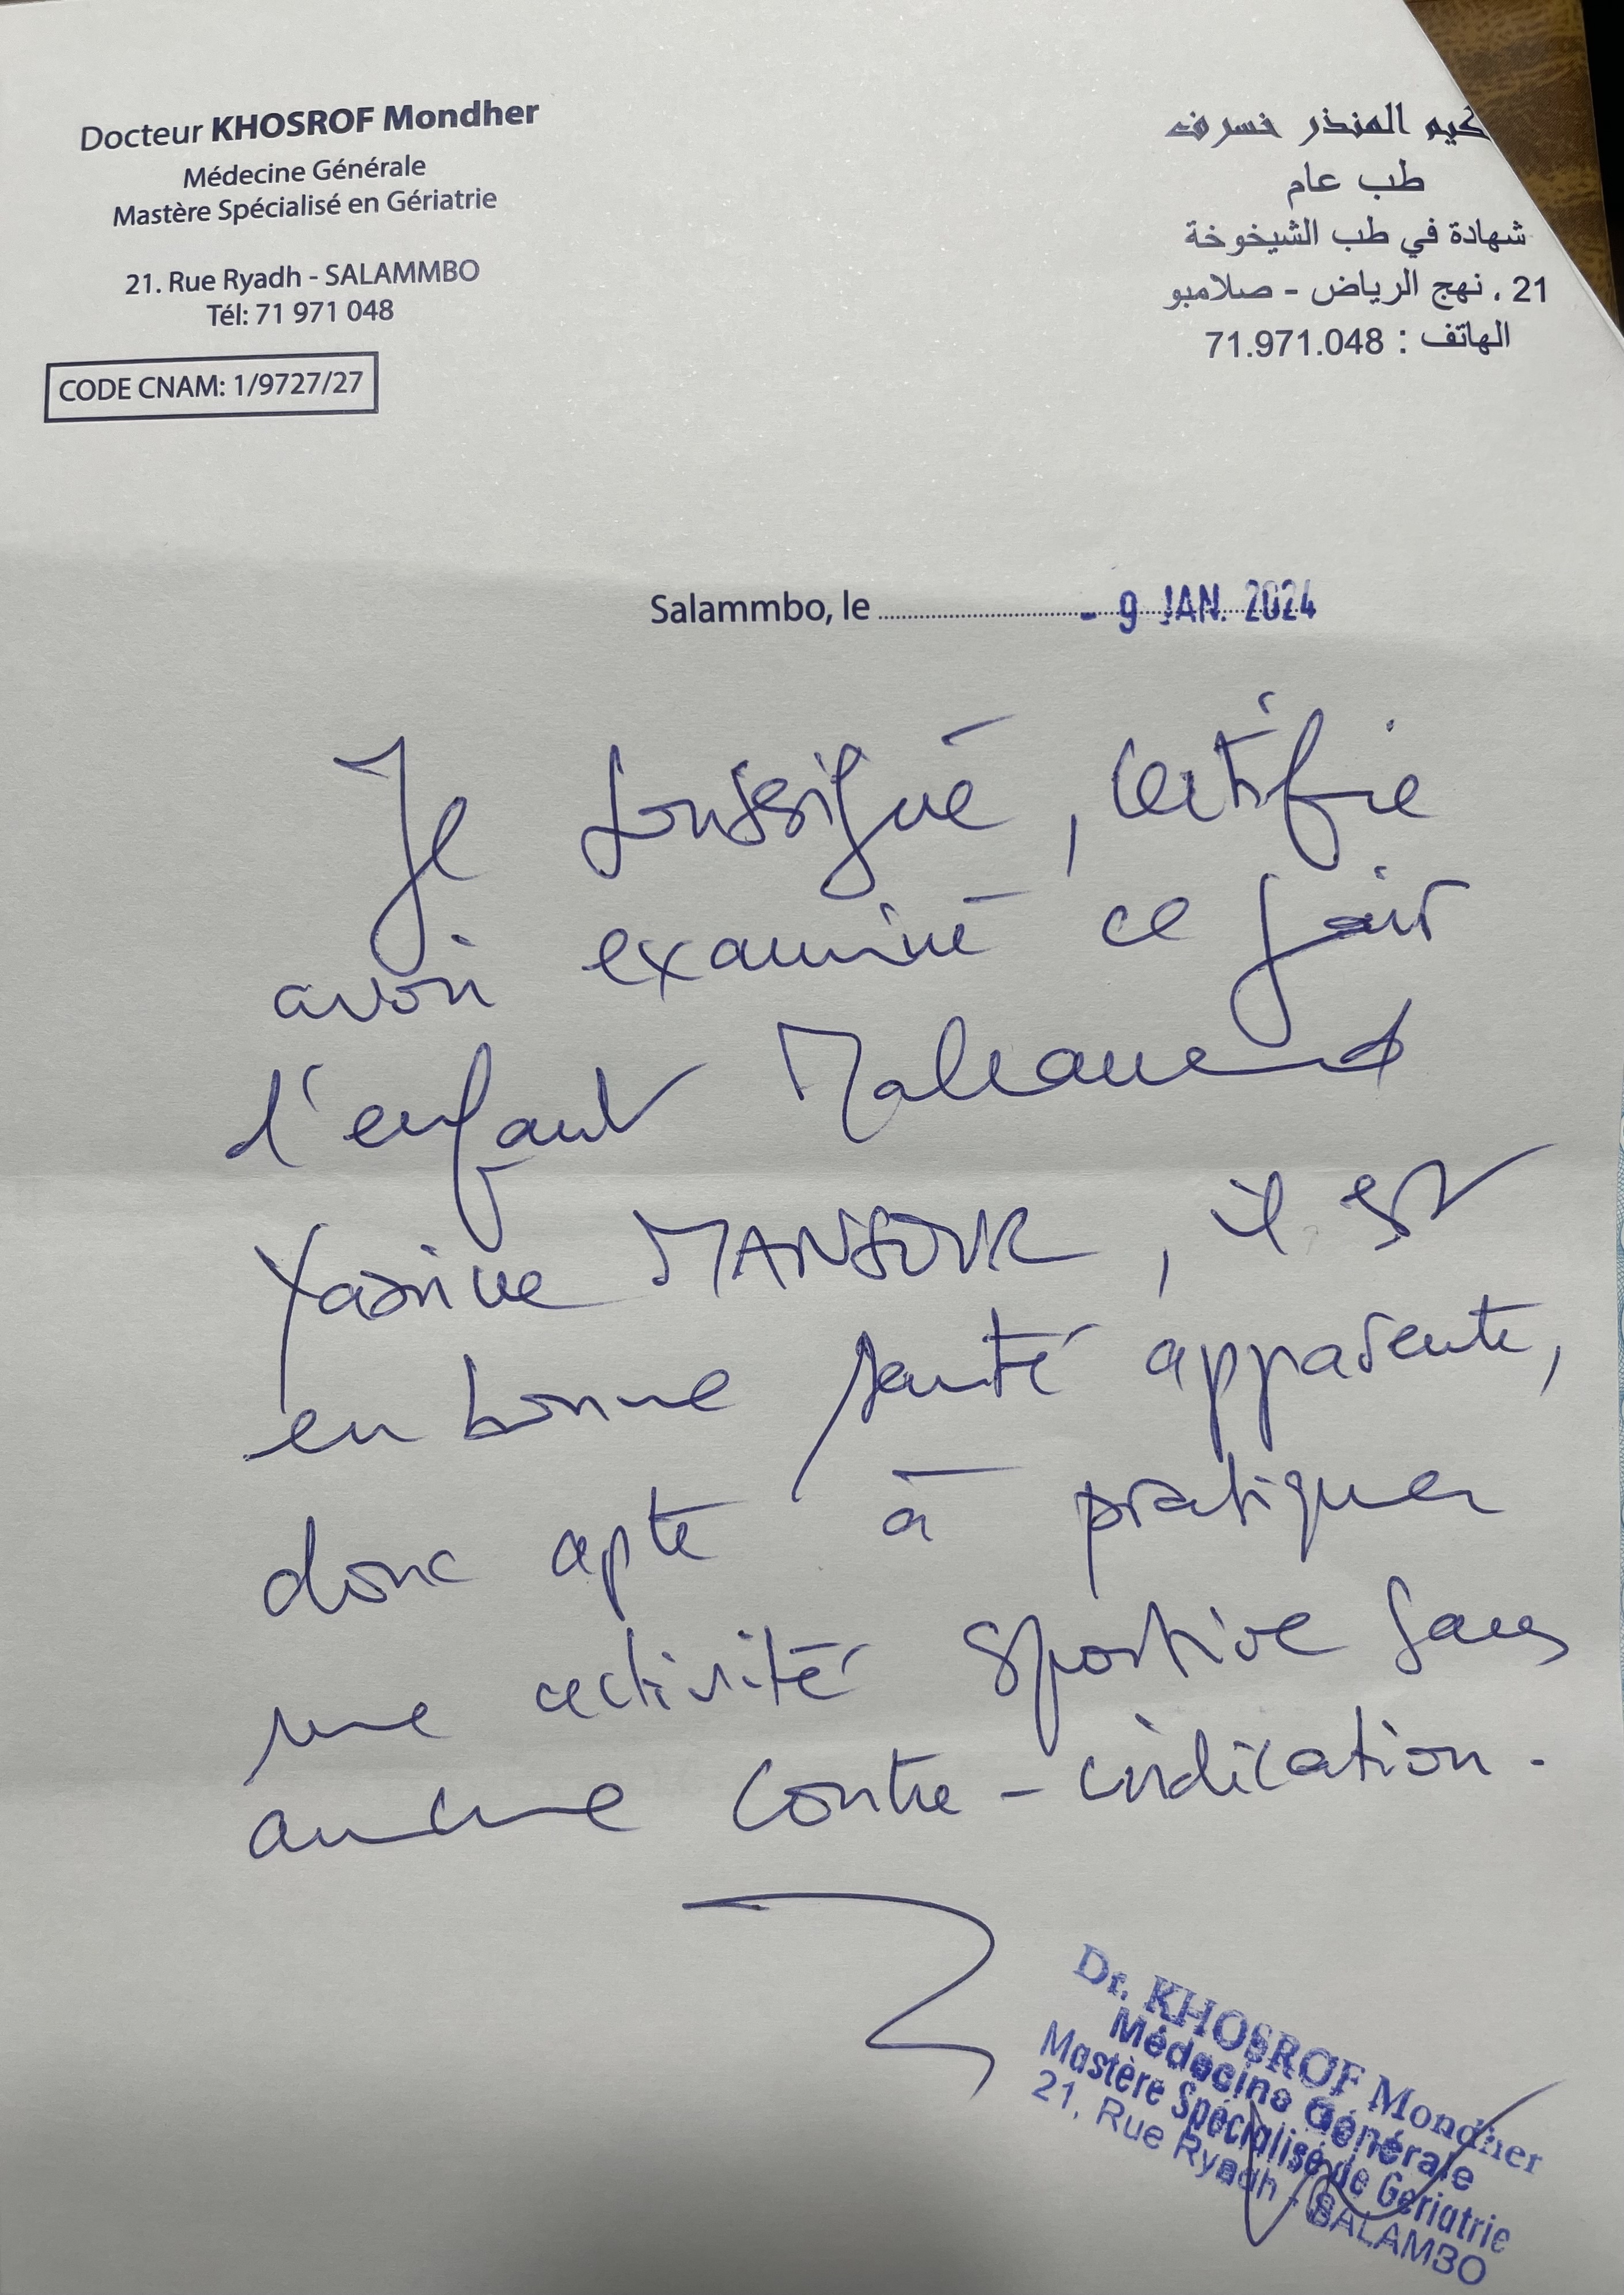 Docteur KHOSROF Mondher
Médecine Générale
Mastère Spécialisé en Gériatrie
21. Rue Ryadh - SALAMMBO
Tél: 71 971 048
CODE CNAM: 1/9727/27
كيم المنذر خسرف
طب عام
شهادة في طب الشيخوخة
21 . نهج الرياض - صلامبو
الهاتف : 71.971.048
Salammbo, le - 9 JAN. 2024
Je soussigné, certifie
avoir examiné ce jour
l'enfant Mohamed
Yassine MANSOUR, il est
en bonne santé apparente,
donc apte à pratiquer
une activité sportive sans
aucune contre-indication.
Dr. KHOSROF Mondher
Médecine Générale
Mastère Spécialisé de Gériatrie
21, Rue Ryadh - SALAMBO